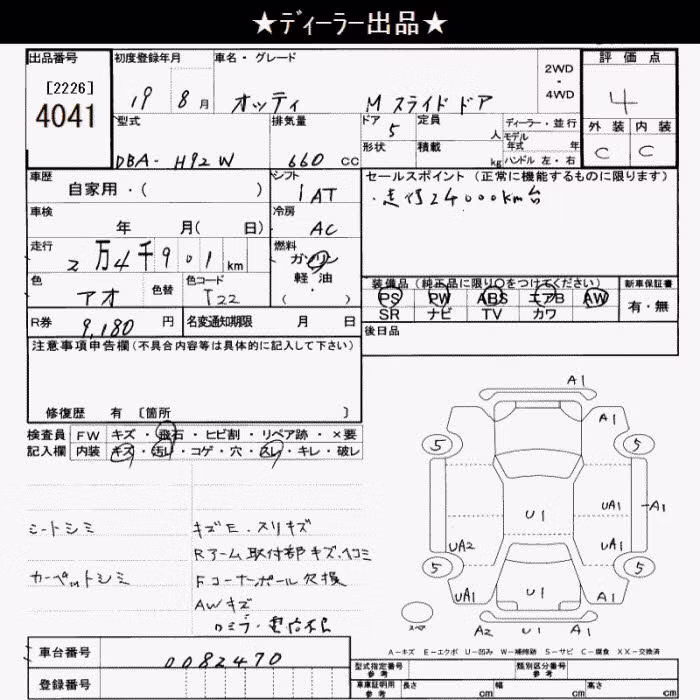 ★ディーラー出品★
出品番号 初度登録年月 車名・グレード 2WD ・ 4WD 評価点
[2226]
4041 19 8月 オッティ M スライドドア 4
型式 排気量 ドア 5 定員 人 ディーラー・並行 外装 内装
モデル年式 年
DBA- H92W 660 CC 形状 積載 kg ハンドル 左・右 C C
車歴 自家用・( ) シフト IAT セールスポイント(正常に機能するものに限ります)
車検 年 月( 日) 冷房 AC ・走行24000km台
走行 2万4千901km 燃料 ガソリン
軽・油
( )
色 アオ 色替 色コード T22 装備品(純正品に限り○をつけてください) 新車保証書
PS PW ABS エアB AW 有・無
SR ナビ TV カワ
R券 9,180 円 名変通知期限 月 日 後日品
注意事項申告欄(不具合内容等は具体的に記入して下さい)
修復歴 有 〔箇所 〕
検査員 FW キズ・飛石・ヒビ割・リペア跡・×要
記入欄 内装 キズ・汚レ・コゲ・穴・スレ・キレ・破レ
シートシミ キズE.スリキズ
Rアーム取付部キズ、ヘコミ
カーペットシミ Fコーナーポール欠損
AWキズ
A1
A1
5 5
UA1 A1
U1
UA2 UA1
5 5
UA1 U1 A1
スペア A2 U1 A1
A-キズ E-エクボ U-凹み W-補修跡 S-サビ C-腐食 XX-交換済
車台番号 0082470
登録番号
型式指定番号 参考 類別区分番号 参考
車庫証明用 参考 長さ cm 幅 cm 高さ cm